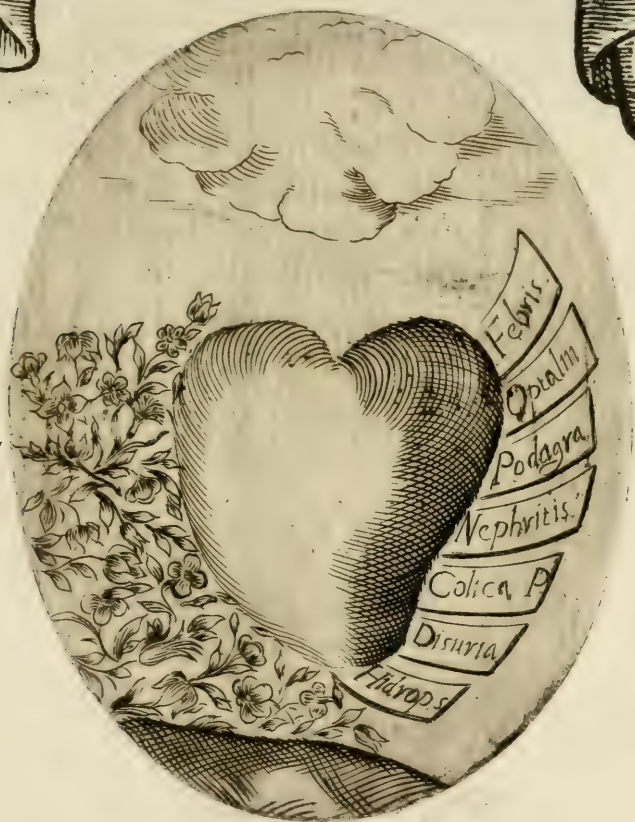 Febris.
Optalm
Podagra
Nephritis.
Colica P
Disuria
Hidrops